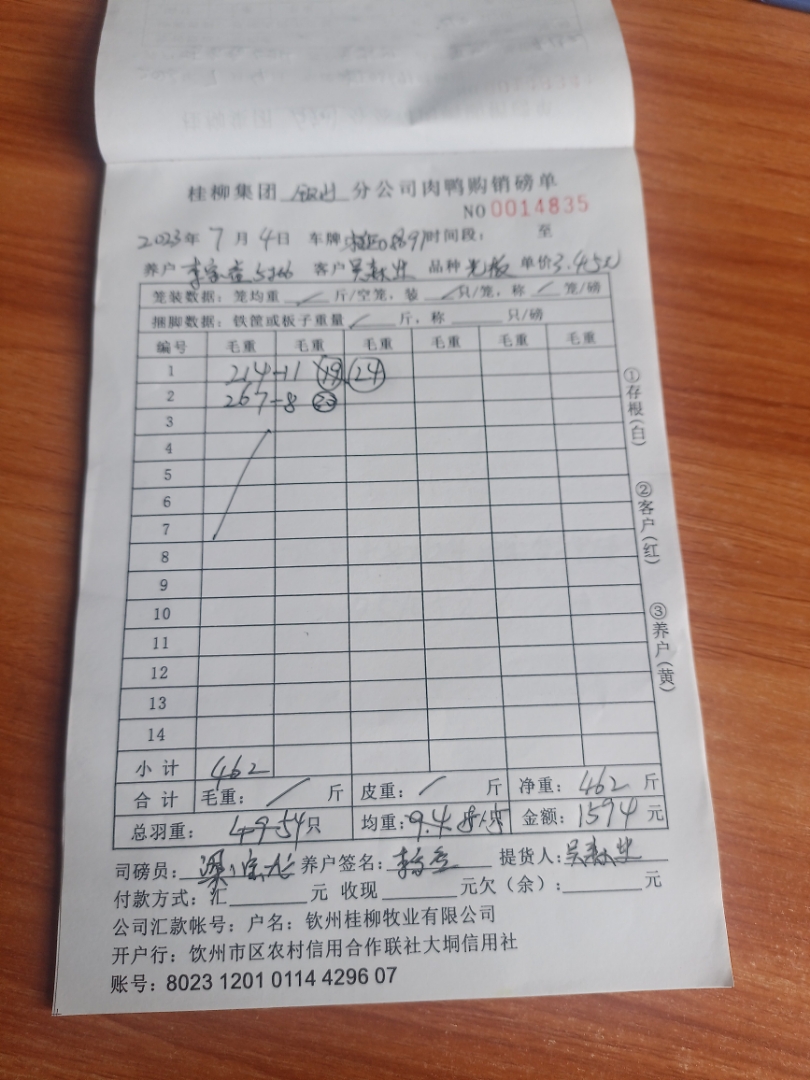 桂柳集团 钦州 分公司肉鸭购销磅单
NO 0014835
2023年 7月 4日 车牌 时间段: 至
养户 客户 吴 品种 光板 单价 3.45元
笼装数据: 笼均重 / 斤/空笼, 装 / 只/笼, 称 / 笼/磅
捆脚数据: 铁筐或板子重量 / 斤, 称 只/磅
编号 毛重 毛重 毛重 毛重 毛重 毛重
1 214-11 19 24
2 267-8
3
4
5
6
7
8
9
10
11
12
13
14
小计 462
合计 毛重: / 斤 皮重: / 斤 净重: 462 斤
总羽重: 54只 均重: 只 金额: 1594 元
司磅员: 梁 养户签名: 李 提货人: 吴
付款方式: 汇 元 收现 元欠(余): 元
公司汇款帐号: 户名: 钦州桂柳牧业有限公司
开户行: 饮州市区农村信用合作联社大垌信用社
账号: 8023 1201 0114 4296 07
①存根(白)
②客户(红)
③养户(黄)